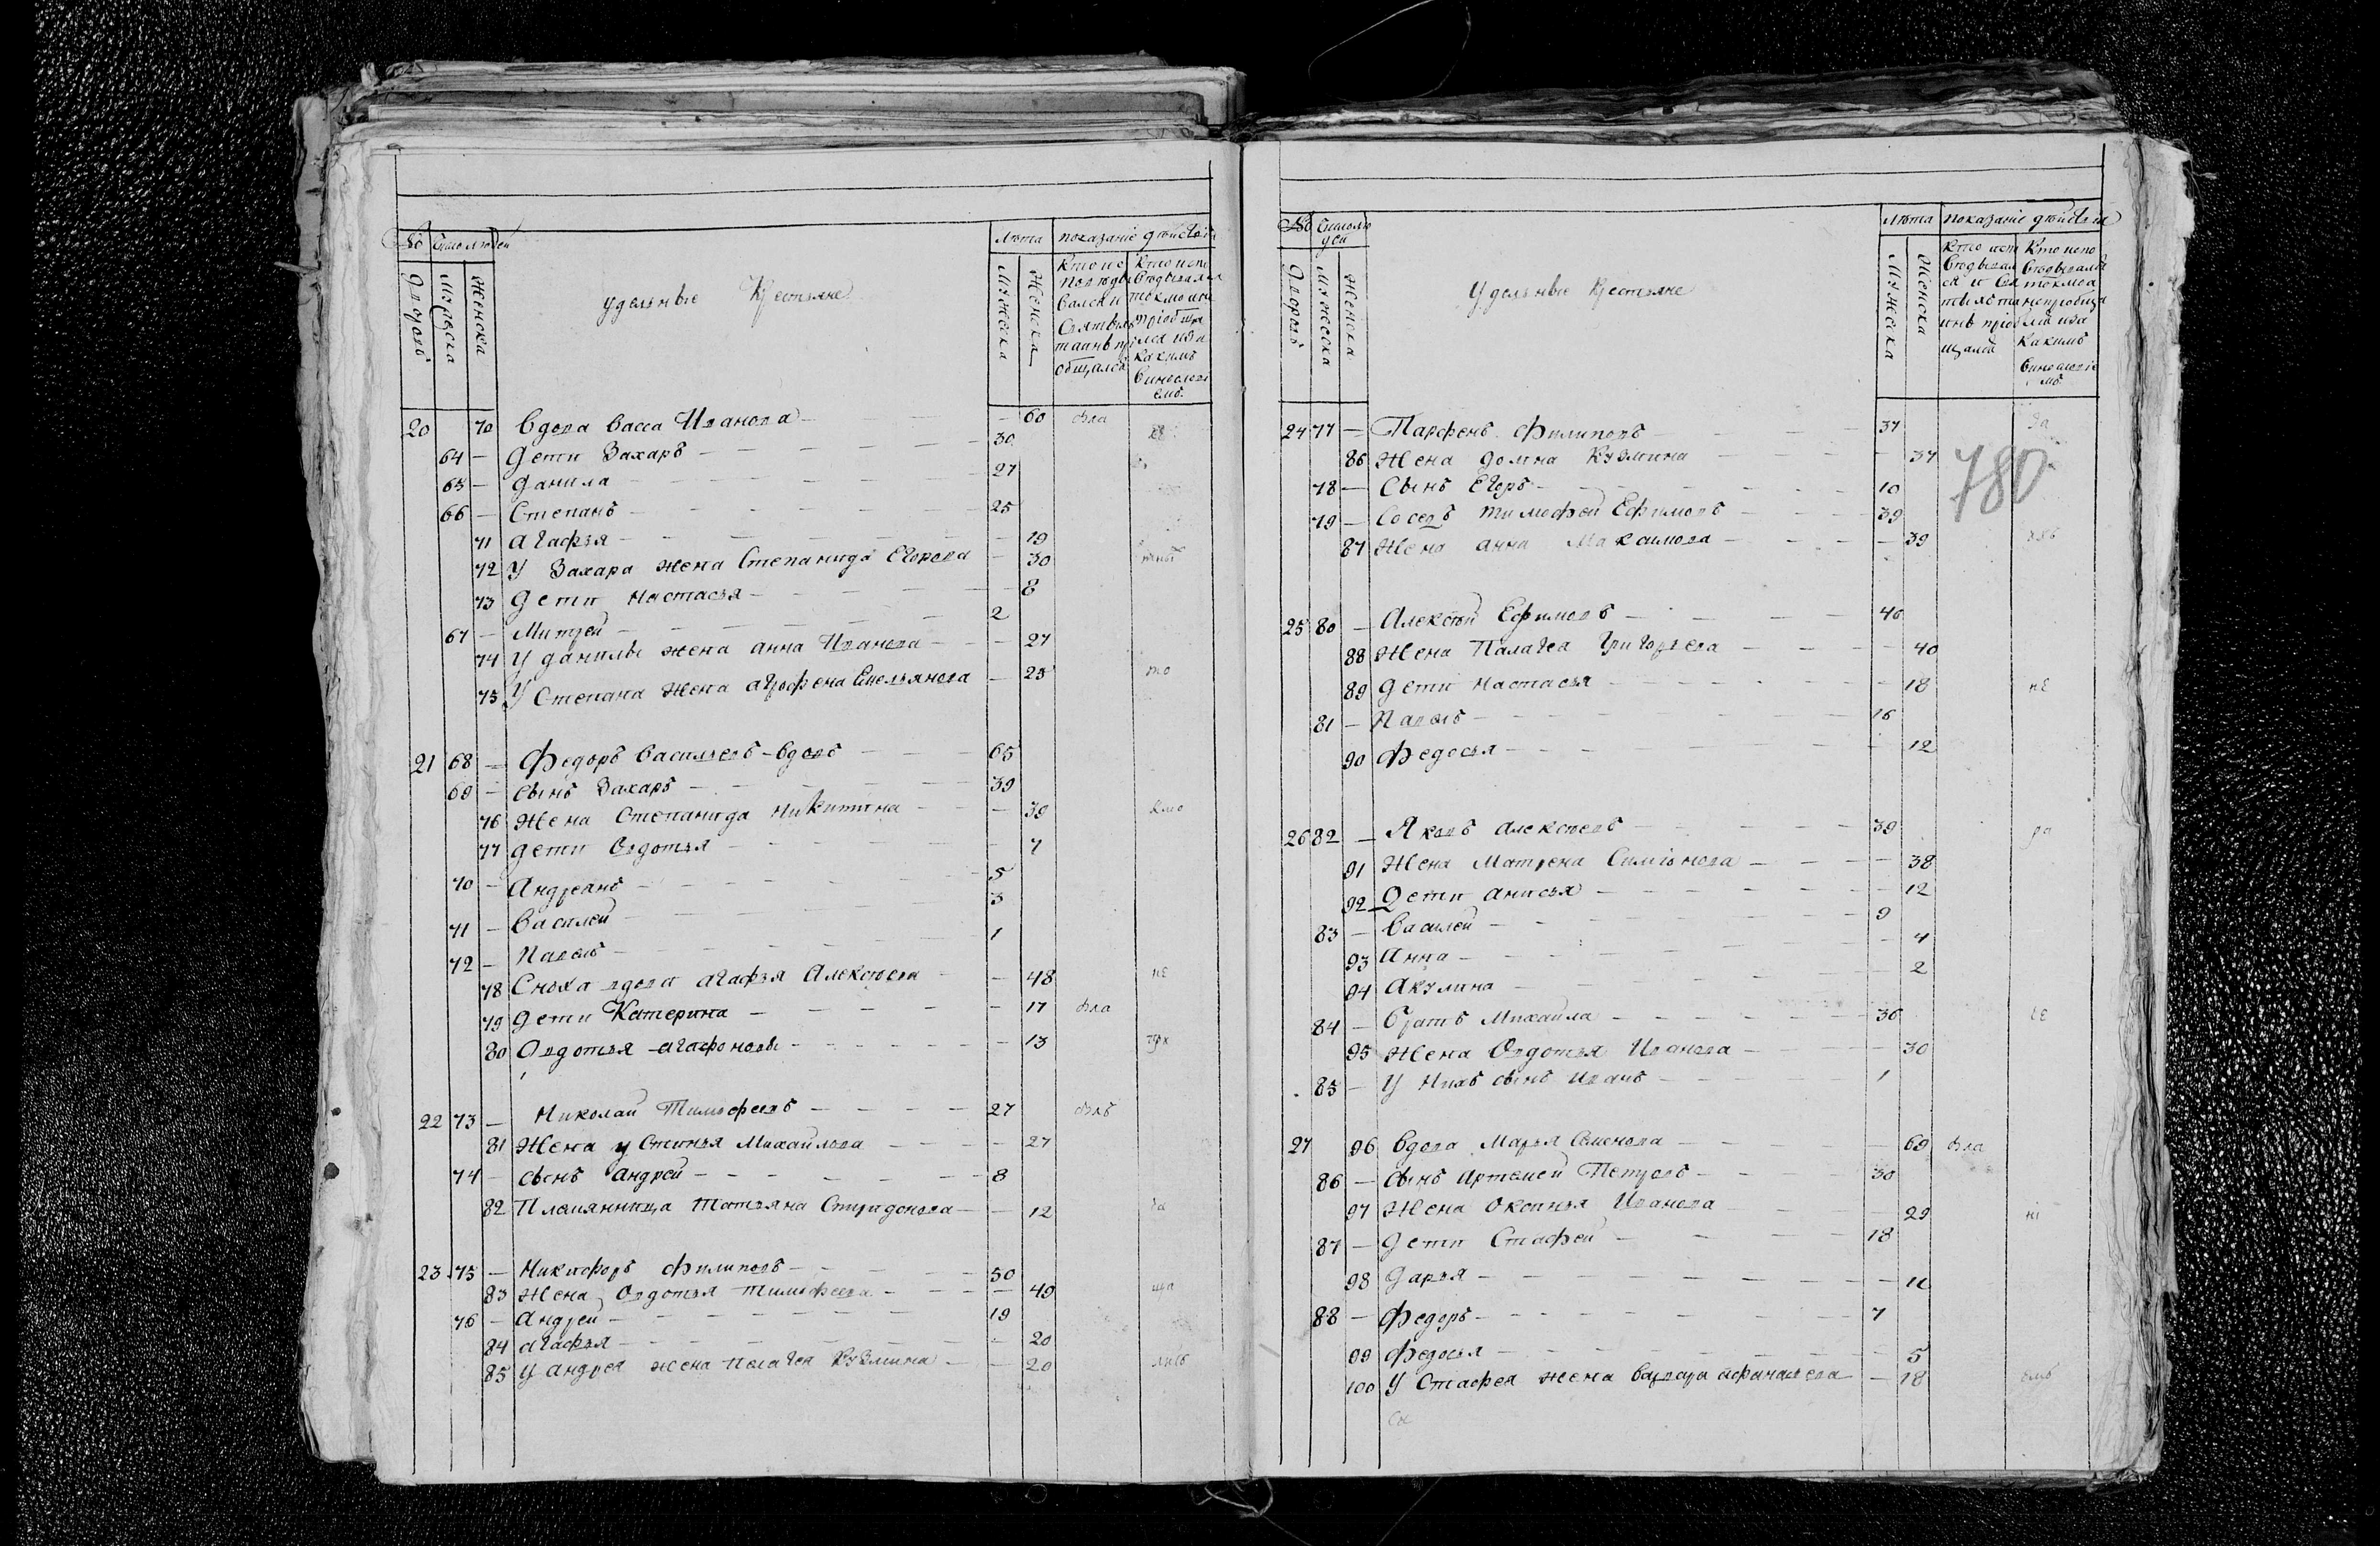 № Число людей
Дворовъ Мужеска Женска
удельные Крестьяне
Лѣта
Мужеска Женска
показаніе действа
20 70 Вдова Васса Иванова — 60 бла
64 — Дети Захаръ — 30
65 — Данила — 27
66 — Степанъ — 25
71 Агафья — 19
72 У Захара жена Степанида Егорова — 30
73 Дети Настасья — 8
67 — Митрей — 2
74 У Данилы жена Анна Иванова — 27
75 У Степана жена Агрофена Емельянова — 25 то
21 68 — Федоръ Васильевъ вдовъ — 65
69 — Сынъ Захаръ — 39
76 Жена Степанида Никитина — 39
77 Дети Овдотья — 7
70 — Андреанъ — 5
71 — Василей — 3
72 — Павелъ — 1
78 Сноха вдова Агафья Алексеева — 48 не
79 Дети Катерина — 17 бла
80 Овдотья Агафоновы — 13
22 73 — Николай Тимофеевъ — 27
81 Жена устинья Михайлова — 27
74 — Сынъ Андрей — 8
82 Племянница Татьяна Спиридонова — 12
23 75 — Никифоръ Филиповъ — 50
83 Жена Овдотья Тимофеева — 49
76 — Андрей — 19
84 Агафья — 20
85 У Андрея жена Пелагея Кузмина — 20
№ Число людей
Дворовъ Мужеска Женска
Удельные Крестьяне
Лѣта
Мужеска Женска
показаніе действа
24 77 — Парфенъ Филиповъ — 37 За
780
86 Жена Домна Кузмина — 37
78 — Сынъ Егоръ — 10
79 — Соседъ Тимофей Ефимовъ — 39
87 Жена Анна Максимова — 39
25 80 — Алексѣй Ефимовъ — 40
88 Жена Палагея Григорьева — 40
89 Дети Настасья — 18 не
81 — Павелъ — 16
90 Федосья — 12
26 82 — Яковъ Алексеевъ — 39 ра
91 Жена Матрена Симіонова — 38
92 Дети Анисья — 12
83 — Василей — 9
93 Анна — 4
94 Акулина — 2
84 — Братъ Михайла — 30
95 Жена Овдотья Иванова — 30
85 — У Нихъ сынъ Иванъ — 1
27 96 Вдова Марья Семенова — 69 бла
86 — Сынъ Артемей Петровъ — 30
97 Жена Оксинья Иванова — 29
87 — Дети Стафей — 18
98 Дарья — 11
88 — Федоръ — 7
99 Федосья — 5
100 У Стафея жена Варвара Афанасьева — 18